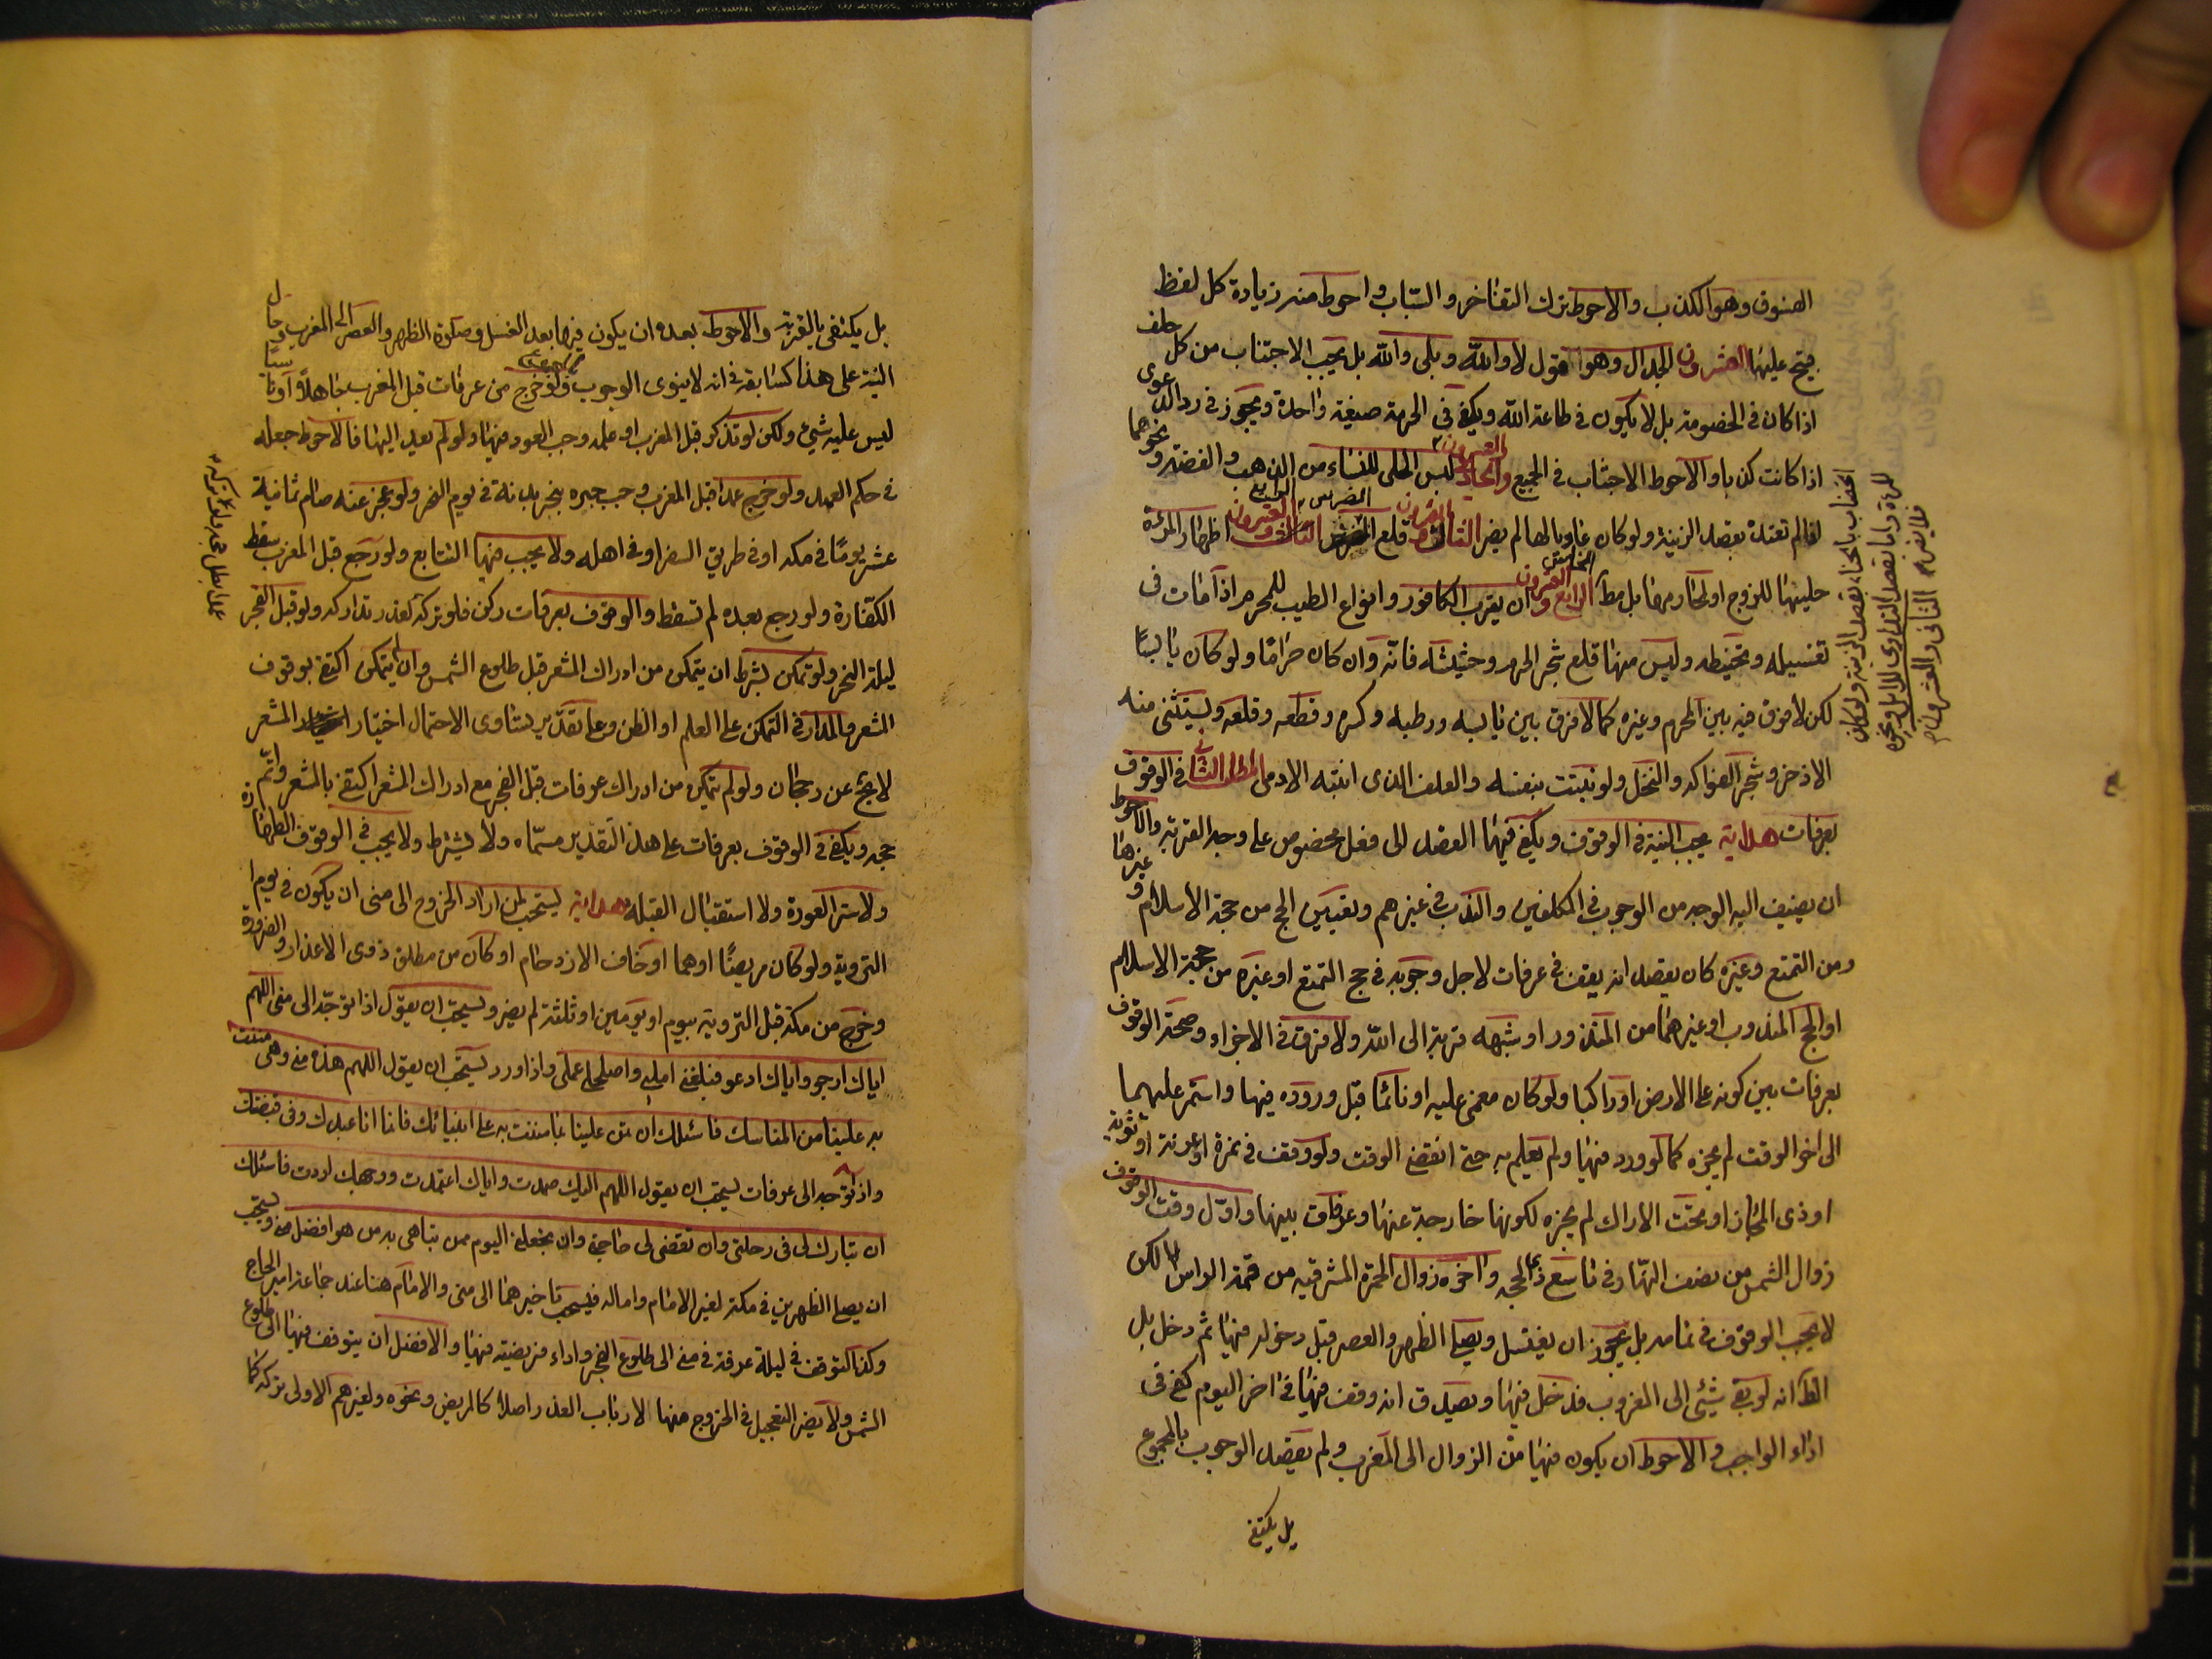 الفسوق وهو الكذب والاحوط ترك التفاخر والسباب واحوط منه زيادة كل لفظ
قبيح عليها العشرون الجدال وهو قول لا والله وبلى والله بل يجب الاجتناب من كل حلف
اذا كان في الخصومة بل لا يكون في طاعة الله ويكفي في الحرمة صيغة واحدة ويجوز في رد الدعوى
اذا كانت كذبا والاحوط الاجتناب في الجميع والحادي العشرون لبس الحلى للنساء من الذهب والفضة ونحوهما
لم تعتد بقصد الزينة ولو كان عاديا لها لم يضر الثالث والعشرون قلع الضرس الرابع والعشرون اظهار المرئة
حليتها للزوج او لمحارمها بل مط الخامس والعشرون ان يقرب الكافور وانواع الطيب للمحرم اذا مات في
تغسيله وتحنيطه وليس منها قلع شجر الحرم وحشيشه فانه وان كان حراما ولو كان يابسا
لكن لا فرق فيه بين المحرم وغيره كما لا فرق بين يابسه ورطبه وكسره وقطعه وقلعه ويستثنى منه
الاذخر وشجر الفواكه والنخل ولو نبتت بنفسه والعلف الذى انبته الادمى المطلب الثاني في الوقوف
بعرفات هداية يجب النية في الوقوف ويكفي فيها القصد الى فعل مخصوص على وجه القربة والاحوط
ان يضيف اليه الوجه من الوجوب في المكلفين والندب في غيرهم وتعيين الحج من حجة الاسلام وغيرها
ومن التمتع وغيره كان يقصد انه يقف في عرفات لاجل وجوبه في حج التمتع او غيره من حجة الاسلام
او الحج المندوب او غيرهما من المنذور او شبهه قربة الى الله ولا فرق في الاجزاء وصحة الوقوف
بعرفات بين كونه على الارض او راكبا ولو كان مغمى عليه او نائما قبل وروده فيها واستمر عليهما
الى اخر الوقت لم يجزه كما لو ورد فيها ولم يعلم به حتى انقضى الوقت ولو وقف في نمرة او عرنة او ثوية
او ذى المجاز او تحت الاراك لم يجزه لكونها خارجة عنها وعرفات بينها واول وقت الوقوف
زوال الشمس من نصف النهار في تاسع ذي الحجه واخره زوال الحمرة المشرقيه من قمة الراس لكن
لا يجب الوقوف في تمامه بل يجوز ان يغتسل ويصلي الظهر والعصر قبل دخوله فيها ثم دخل بل
الظ انه لو بقي شيئ الى الغروب فدخل فيها ويصدق انه وقف فيها في اخر اليوم كفى في
اداء الواجب والاحوط ان يكون فيها من الزوال الى المغرب ولم يقصد الوجوب بالمجموع
بل يكتفى
الخضاب بالحناء بقصد الزينة ولو كان
للمرءة واما بقصد التداوى للابل ونحوه
فلا يضر الثاني والعشرون
بل يكتفى بالقربة والاحوط بعده ان يكون فيها بعد الغسل وصلوة الظهر والعصر الى المغرب وحال
النية على هذا كسابقه في انه لا ينوى الوجوب ولو خرج من عرفات قبل المغرب جاهلا او ناسيا
ليس عليه شيئ ولكن لو تذكر قبل المغرب او علمه وجب العود فيها ولو لم يعد اليها فالاحوط جعله
في حكم العمد ولو خرج عمدا قبل المغرب وجب جبره بنحر بدنة في يوم النحر ولو عجز عنه صام ثمانية
عشر يوما في مكه او في طريق السفر او في اهله ولا يجب فيها التتابع ولو رجع قبل المغرب سقط
الكفارة ولو رجع بعده لم تسقط والوقوف بعرفات ركن فلو تركه لعذر تداركه ولو قبل الفجر
ليلة النحر ولو تمكن بشرط ان يتمكن من ادراك المشعر قبل طلوع الشمس وان لم يتمكن اكتفى بوقوف
المشعر والمدار في التمكن على العلم او الظن وعلى تقدير تساوى الاحتمال اختيار المشعر
لا يخ عن رجحان ولو لم يتمكن من ادراك عرفات قبل الفجر مع ادراك المشعر اكتفى بالمشعر واتم
حجه ويكفي في الوقوف بعرفات على هذا التقدير مسماه ولا يشترط ولا يجب في الوقوف الطهارة
ولا ستر العورة ولا استقبال القبله هداية يستحب لمن اراد الخروج الى منى ان يكون في يوم
التروية ولو كان مريضا او هما او خاف الازدحام او كان من مطلق ذوى الاعذار والضرورة
وخرج من مكة قبل التروية بيوم او يومين او ثلثة لم يضر ويستحب ان يقول اذا توجه الى منى اللهم
اياك ارجو واياك ادعو فبلغني املي واصلح لي عملى واذا ورد يستحب ان يقول اللهم هذه منى وهى مما مننت
به علينا من المناسك فاسئلك ان تمن علينا بما مننت به على انبيائك فانما انا عبدك وفى قبضتك
واذا توجه الى عرفات يستحب ان يقول اللهم اليك صمدت واياك اعتمدت ووجهك اردت فاسئلك
ان تبارك لى فى رحلتى وان تقضى لى حاجتي وان تجعلني اليوم ممن تباهى به من هو افضل مني ويستحب
ان يصلي الظهرين في مكة لغير الامام واما له فيستحب تاخيرهما الى منى والامام هنا عند جماعة امير الحاج
وكذا التوقف في ليلة عرفة في منى الى طلوع الفجر واداء فريضته فيها والافضل ان يتوقف فيها الى طلوع
الشمس ولا يضر التعجيل في الخروج منها لارباب العذر اصلا كالمريض ونحوه ولغيرهم الاولى تركه كما